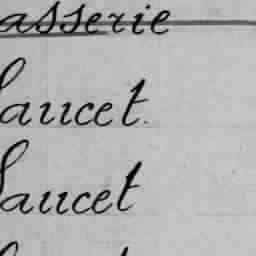 asserie
Saucet.
Saucet